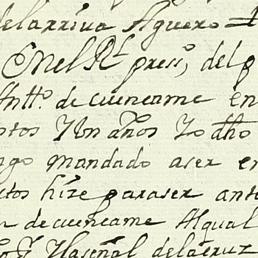 delarriva Aguero
En el Rl pressº, del p
Antto. de cuencame en
ptos Un años Yo dho
ngo mandado aser en
ctos hize paraser ant
de cuencame Alqual
Y laseñal delacruz